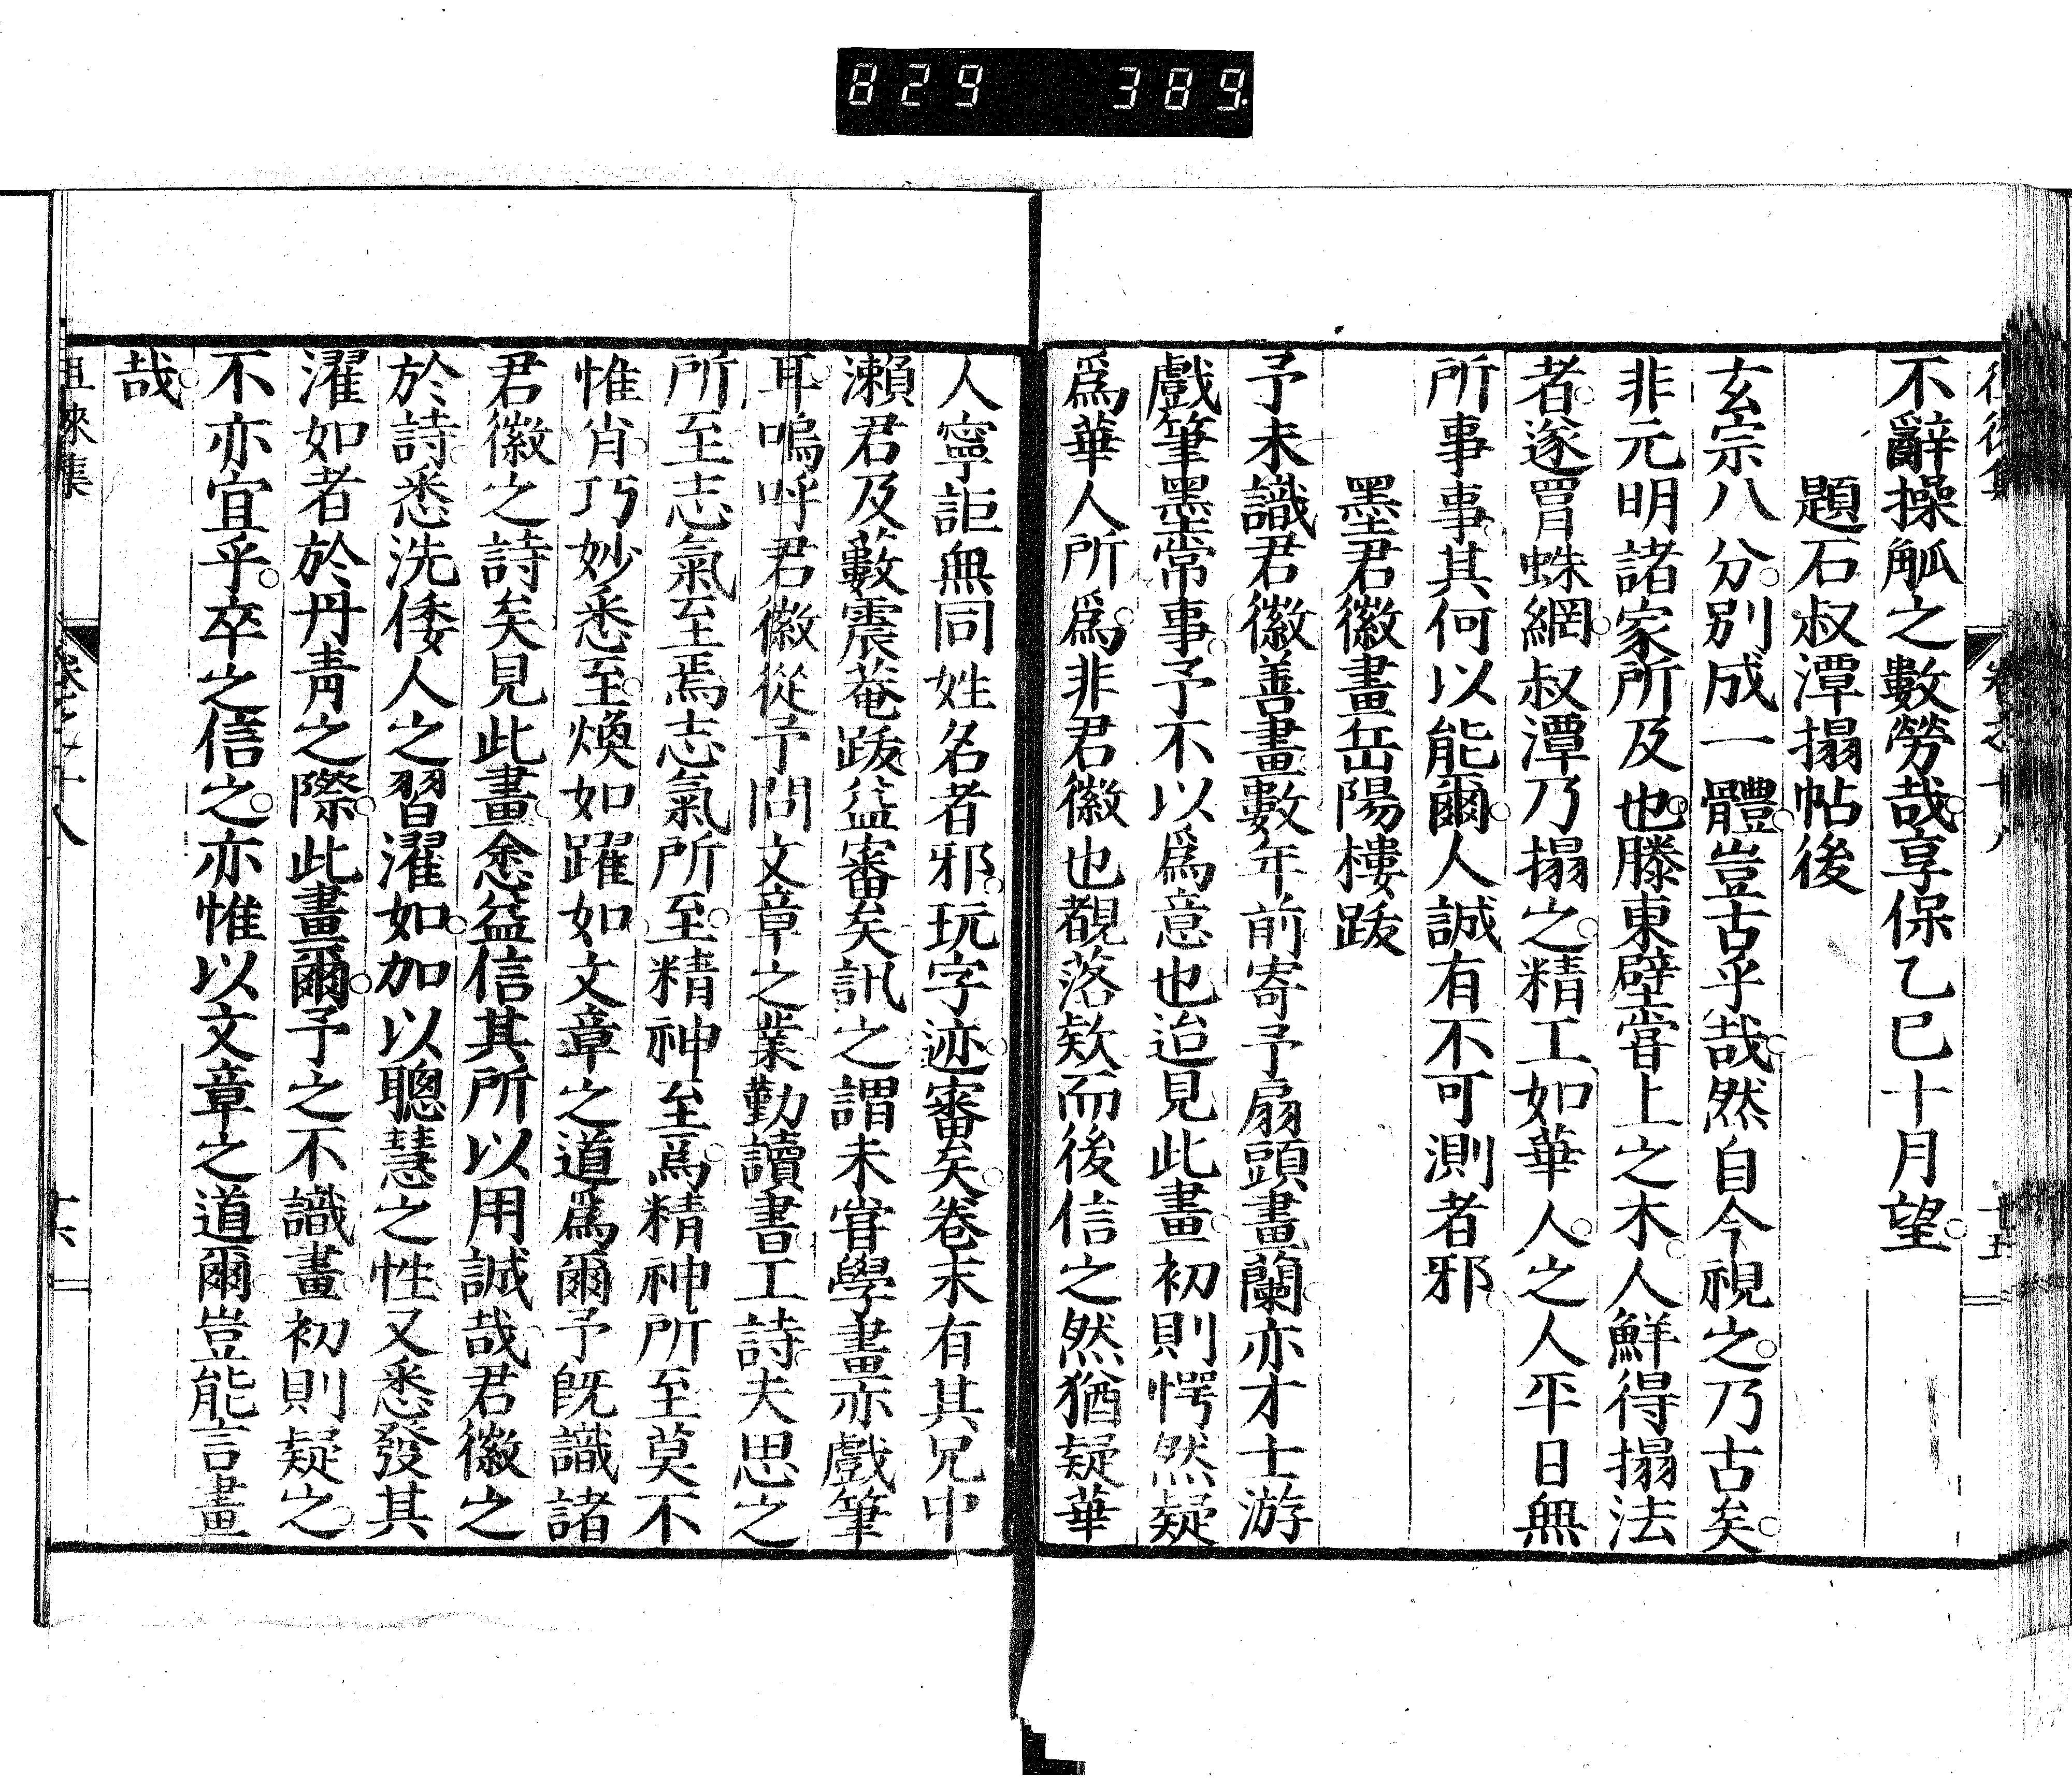 829 389
不辭操觚之數勞哉享保乙巳十月望
題石叔潭搨帖後
玄宗八分別成一體豈古乎哉然自今視之乃古矣
非元明諸家所及也滕東壁甞上之木人鮮得搨法
者遂罥蛛網叔潭乃搨之精工如華人之人平日無
所事事其何以能爾人誠有不可測者邪
墨君徽畫岳陽樓跋
予未識君徽善畫數年前寄予扇頭畫蘭亦才士游
戲筆墨常事予不以爲意也迨見此畫初則愕然疑
爲華人所爲非君徽也覩落欵而後信之然猶疑華
人寧詎無同姓名者邪玩字迹審矣卷末有其兄中
瀨君及藪震菴跋益審矣訊之謂未甞學畫亦戲筆
耳嗚呼君徽從予問文章之業勤讀書工詩夫思之
所至志氣至焉志氣所至精神至焉精神所至莫不
惟肖巧妙悉至煥如躍如文章之道爲爾予旣識諸
君徽之詩矣見此畫悆益信其所以用誠哉君徽之
於詩悉洗倭人之習濯如加以聰慧之性又悉發其
濯如者於丹靑之際此畫爾予之不識畫初則疑之
不亦宜乎卒之信之亦惟以文章之道爾豈能言畫
哉
徂徠集 卷之十八 十六